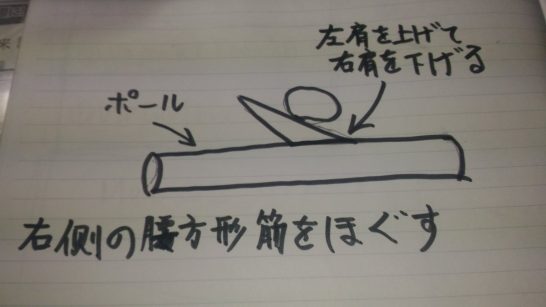 左肩を上げて
右肩を下げる
ポール
右側の腰方形筋をほぐす